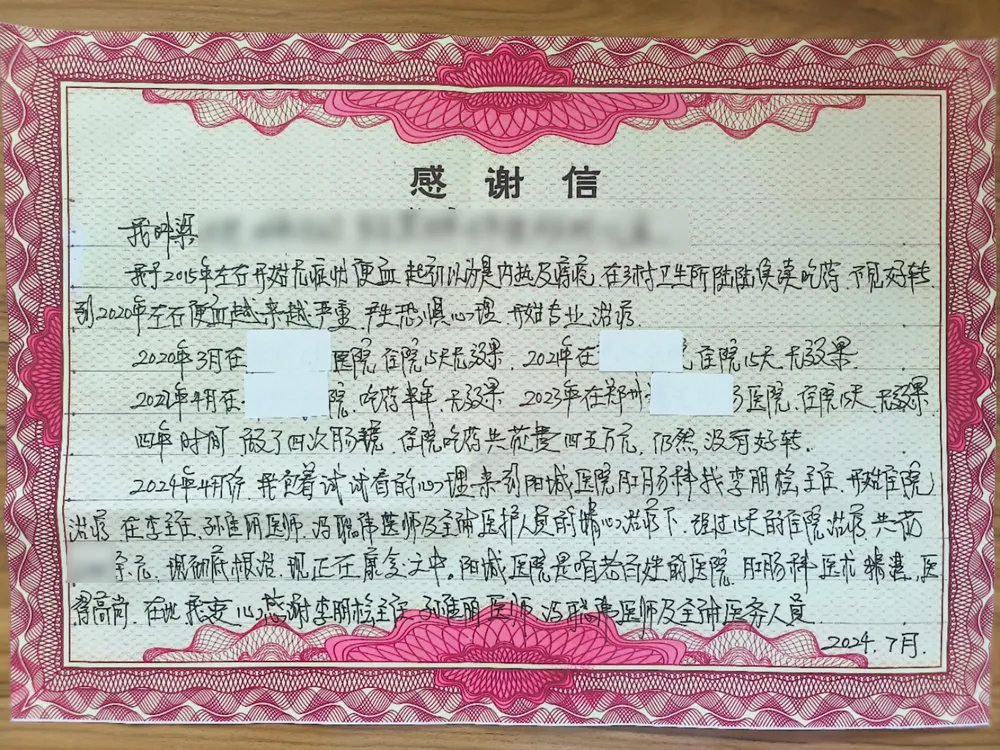 感谢信
我叫梁
我于2015年左右开始无症状便血 起初以为是内热及痔疮,在乡村卫生所陆陆续续吃药 不见好转
到2020年左右便血越来越严重 产生恐惧心理 开始专业治疗.
2020年3月在 医院,住院15天无效果. 2021年在 院,住院15天 无效果.
2022年4月在 院,吃药半年,无效果 2023年在郑州 医院,住院15天,无效果
四年时间 做了四次肠镜,住院吃药共花费四五万元,仍然没有好转.
2024年4月份,我抱着试试看的心理来到阳城医院肛肠科找李朋 主任.开始住院
治疗 在李主任,孙 丽医师,冯聪伟医师及全部医护人员的精心治疗下,经过15天的住院治疗,共花
余元,现彻底根治.现正在康复之中。阳城医院是咱老百姓的医院,肛肠科医术精湛,医
得高尚.在此我衷心感谢李朋 主任,孙 丽医师,冯聪伟医师及全部医务人员.
2024.7月.